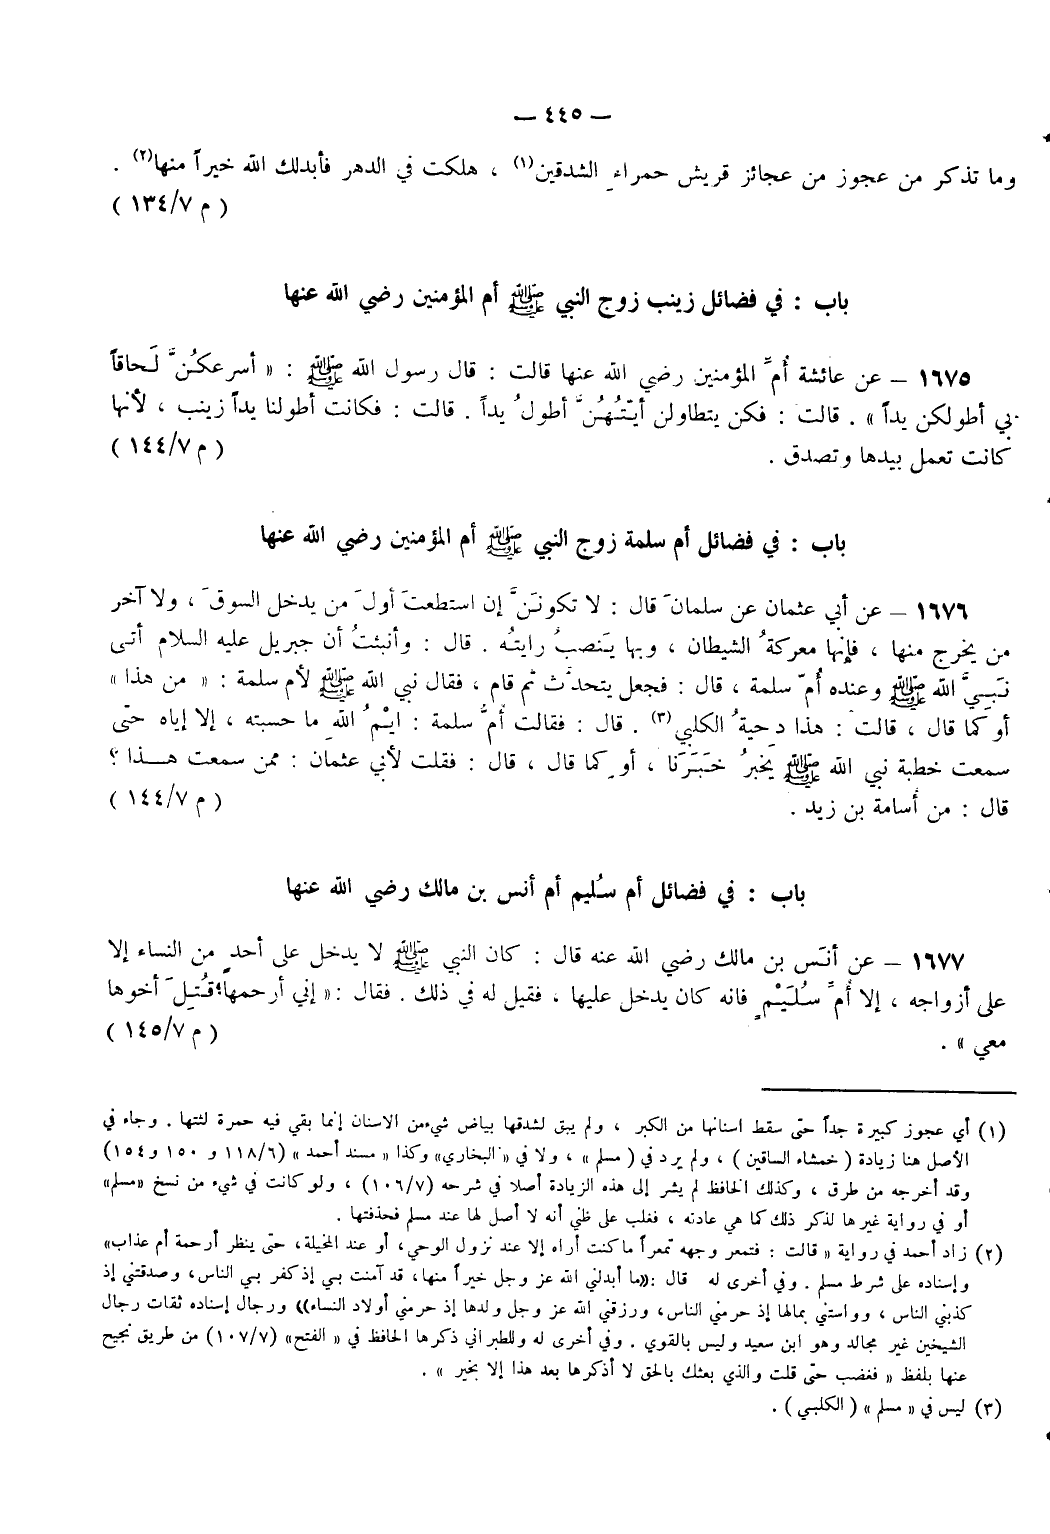 — ٤٤٥ —
وما تذكر من عجوز من عجائز قريش حمراءِ الشدقين(١) ، هلكت في الدهر فأبدلك الله خيراً منها(٢) .
( م ١٣٤/٧ )
باب : في فضائل زينب زوج النبي ﷺ أم المؤمنين رضي الله عنها
١٦٧٥ — عن عائشة أُمِّ المؤمنين رضي الله عنها قالت : قال رسول الله ﷺ : « أسرعكُنَّ لَحاقاً
بي أطولكن يداً » . قالت : فكن يتطاولن أيّتُهُنَّ أطولُ يداً . قالت : فكانت أطولنا يداً زينب ، لأنها
كانت تعمل بيدها وتصدق . ( م ١٤٤/٧ )
باب : في فضائل أم سلمة زوج النبي ﷺ أم المؤمنين رضي الله عنها
١٦٧٦ — عن أبي عثمان عن سلمانَ قال : لا تكونَنَّ إن استطعتَ أولَ من يدخل السوقَ ، ولا آخر
من يخرج منها ، فإنها معركةُ الشيطان ، وبها يَنصبُ رايتهُ . قال : وأنبئتُ أن جبريل عليه السلام أتى
نَبيَّ الله ﷺ وعنده أُمّ سلمة ، قال : فجعل يتحدَّث ثم قام ، فقال نبي الله ﷺ لأم سلمة : « من هذا »
أو كما قال ، قالت : هذا دحيةُ الكلبي(٣) . قال : فقالت أُمُّ سلمة : ايْمُ اللهِ ما حسبته ، إلا إياه حتى
سمعت خطبة نبي الله ﷺ يخبرُ خَبَرَنا ، أو كما قال ، قال : فقلت لأبي عثمان : ممن سمعت هـذا ؟
قال : من أُسامة بن زيد . ( م ١٤٤/٧ )
باب : في فضائل أم سُليم أم أنس بن مالك رضي الله عنها
١٦٧٧ — عن أنَس بن مالك رضي الله عنه قال : كان النبي ﷺ لا يدخل على أحدٍ من النساء إلا
على أزواجه ، إلا أُمِّ سُلَيْمٍ فانه كان يدخل عليها ، فقيل له في ذلك . فقال :« إني أرحمها؛قُتِلَ أخوها
معي » . ( م ١٤٥/٧ )
(١) أي عجوز كبيرة جداً حتى سقط اسنانها من الكبر ، ولم يبق لشدقها بياض شيءمن الاسنان إنما بقي فيه حمرة لثتها . وجاء في
الأصل هنا زيادة ( خمشاء الساقين ) ، ولم يرد في ( مسلم » ، ولا في « البخاري» وكذا « مسند أحمد » (١١٨/٦ و ١٥٠ و ١٥٤)
وقد أخرجه من طرق ، وكذلك الحافظ لم يشر إلى هذه الزيادة أصلا في شرحه (١٠٦/٧) ، ولو كانت في شيء من نسخ «مسلم»
أو في رواية غيرها لذكر ذلك كما هي عادته ، فغلب على ظني أنه لا أصل لها عند مسلم فحذفتها .
(٢) زاد أحمد في رواية « قالت : فتمعر وجهه تمعراً ما كنت أراه إلا عند نزول الوحي، أو عند المخيلة، حتى ينظر أرحمة أم عذاب»
وإسناده على شرط مسلم . وفي أخرى له قال :«ما أبدلني الله عز وجل خيراً منها، قد آمنت بي إذ كفر بي الناس، وصدقتني إذ
كذبني الناس ، وواستني بمالها إذ حرمني الناس، ورزقني الله عز وجل ولدها إذ حرمني أولاد النساء)) ورجال إسناده ثقات رجال
الشيخين غير مجالد وهو ابن سعيد وليس بالقوي . وفي أخرى له وللطبراني ذكرها الحافظ في « الفتح» (١٠٧/٧) من طريق نجيح
عنها بلفظ « فغضب حتى قلت والذي بعثك بالحق لا أذكرها بعد هذا إلا بخير » .
(٣) ليس في « مسلم » ( الكلبي ) .